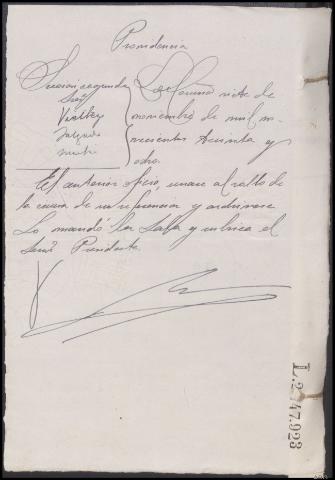 Providencia
Sección segunda
Señ
Vieitez
Salgado
La Coruña siete de
noviembre de mil no-
vecientos treinta y
ocho.
El anterior oficio, unase al rollo de
la causa de su referencia y
Lo mandó la Sala y rubrica el
Señor Presidente
L.2147.923